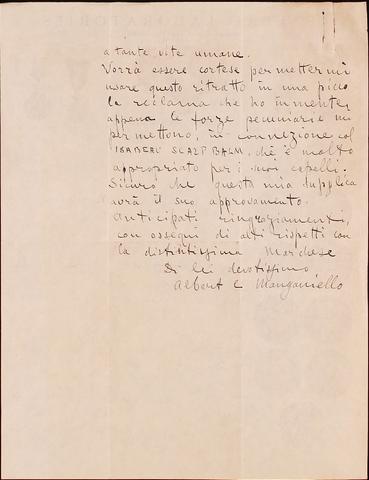 a tante vite umane.
Vorrà essere cortese permettermi
usare questo ritratto in una picco
la reclama che ho in mente,
appena le forze pecuniarie mi
permettono, in connezione col
ISABEAU SCALP BALM, chè è molto
appropriato per i suoi capelli.
Sicuro che questa mia supplica
avrà il suo approvamento.
Anticipati ringraziamenti,
con ossequi di alti rispetti con
la distintissima Marchese
Di lei devotissimo
Albert C Manganiello